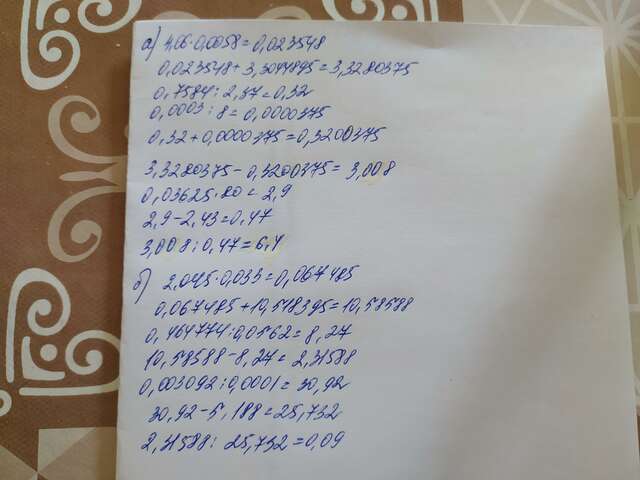 а) 4,06·0,0058=0,023548
0,023548+3,3044895=3,3280375
0,7584:2,37=0,32
0,0003:8=0,0000375
0,32+0,0000375=0,3200375
3,3280375-0,3200375=3,008
0,03625·80=2,9
2,9-2,43=0,47
3,008:0,47=6,4
б) 2,045·0,033=0,067485
0,067485+10,518395=10,58588
0,464774:0,0562=8,27
10,58588-8,27=2,31588
0,003092:0,0001=30,92
30,92-5,188=25,732
2,31588:25,732=0,09